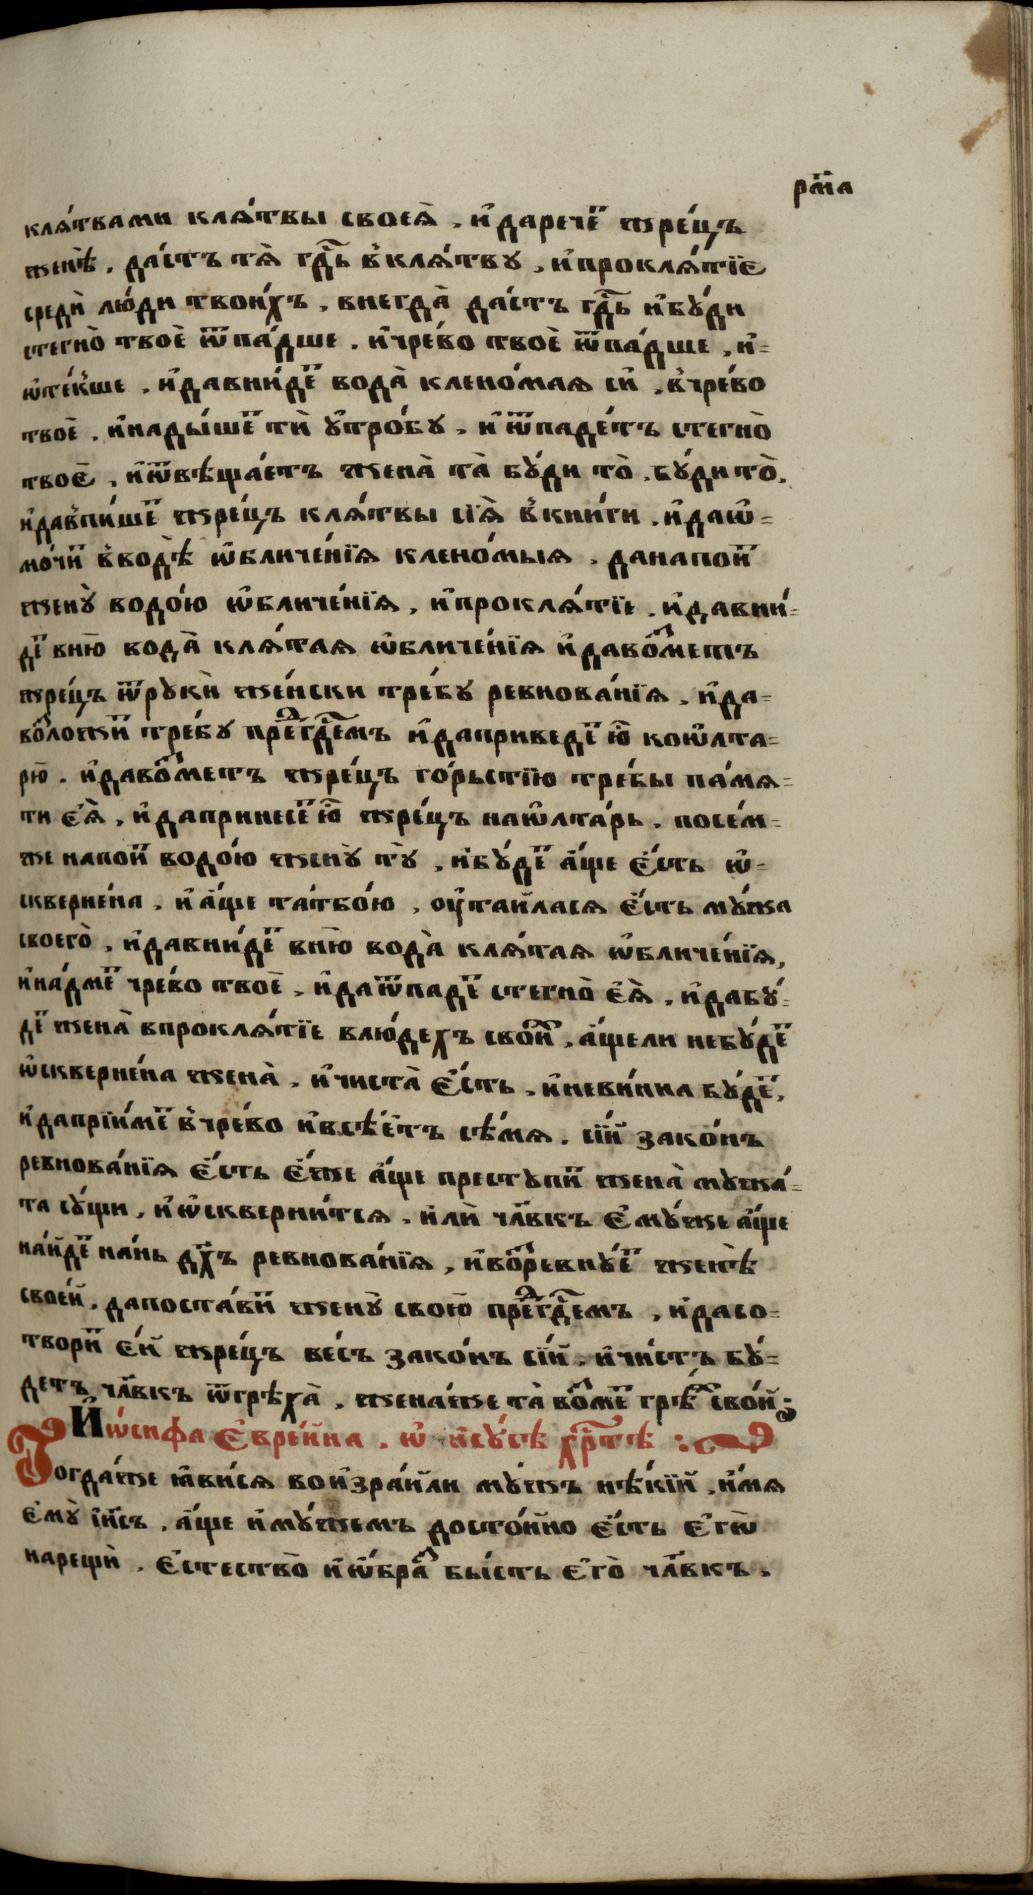 рм҃а
кля́твами кля́твы своея̀ . и҆дарече́т жре́цъ
женѣ̀ . да́стъ тя̀ гд҇ь в҆кля́тву . и҆прокля́тїе
средѝ лю́ди твои́хъ . внегда̀ да́стъ гд҇ь и҆бу́ди
стегно̀ твоѐ ѿпа́дше . и҆чре́во твоѐ ѿпа́дше , и҆-
ѡ҆те́кше . и҆давни́детⷮ вода̀ клено́мая сѝ . в҆чре́во
твоѐ . и҆нады́шетⷮ тѝ у҆тро́бу . и҆ ѿпаде́тъ стегно̀
твоѐ , и҆ѿвѣща́етъ жена̀ та̀ бу́ди то̀ . бу́ди то̀ .
и҆дав҆пи́шетⷮ жре́цъ кля́твы сїя̀ в҆кни́ги . и҆даѡ҆-
мо́читⷮ в҆водѣ̀ ѡ҆бличе́нїя клено́мыя . данапои́тⷮ
жену̀ водо́ю ѡ҆бличе́нїя , и҆прокля́тїе . и҆давни́-
детⷮ в҆ню̀ вода̀ кля́тая ѡ҆бличе́нїя и҆даво́зⷥметъ
жре́цъ ѿрукѝ же́нски тре́бу ревнова́нїя . и҆да-
во́зⷥложитⷮ тре́бу преⷣгдⷭ҇емъ и҆даприведе́тⷮ ю҆̀ коѡ҆лта-
рю̀ . и҆даво́зⷥметъ жре́цъ го́рьстїю тре́бы па́мя-
ти є҆я̀ , и҆дапринесе́тⷮ ю҆̀ жре́цъ наѡ҆лта́рь . посе́м-
же напои́тⷮ водо́ю жену̀ ту̀ , и҆бу́детⷮ а҆́ще є҆́сть ѡ҆-
скверне́на . и҆ а҆́ще татбо́ю , оу҆таи́лася є҆́сть му́жа
своего̀ , и҆давни́детⷮ в҆ню̀ вода̀ кля́тая ѡ҆бличе́нїя ,
и҆на́дметⷮ чре́во твоѐ . и҆даѿпаде́тⷮ стегно̀ є҆я̀ , и҆дабу́-
детⷮ жена̀ в҆прокля́тїе влю́дехъ свои́хⷯ , а҆́щели небу́детⷮ
ѡ҆скверне́на жена̀ . и҆чиста̀ є҆́сть . и҆неви́нна бу́детⷮ ,
и҆дапрїи́метⷮ в҆чре́во и҆всѣ́етъ сѣ́мя . сі́й зако́нъ
ревнова́нїя є҆́сть є҆́же а҆́ще престу́питⷮ жена̀ мужа́-
та су́щи , и҆ѡ҆скверни́тся . и҆лѝ чл҃вкъ є҆му́же а҆́ще
на́йдетⷮ на́нь дх҃ъ ревнова́нїя , и҆возⷥревну́етⷮ женѣ̀
свое́й . дапоста́витⷮ жену̀ свою̀ преⷣгдⷭ҇емъ , и҆дасо-
твори́тⷮ є҆́й жре́цъ ве́съ зако́нъ сі́й . и҆чи́стъ бу́-
детъ чл҃вкъ ѿгрѣха̀ . жена́же та̀ во́зⷥметⷮ грѣхⷯ сво́й ;
И҆ѡ́сифа є҆вре́ина . ѡ҆ и҆су́сѣ хрⷭ҇тѣ̀ :
Тогда́же я҆ви́ся воизра́или му́жъ нѣ́кїй . и҆мя
є҆му̀ і҆и҃съ . а҆́ще и҆му́жемъ досто́йно є҆́сть є҆го̀
нарещѝ . є҆стество̀ и҆ѡ҆бра́зⷥ бы́сть є҆го̀ чл҃вкъ .